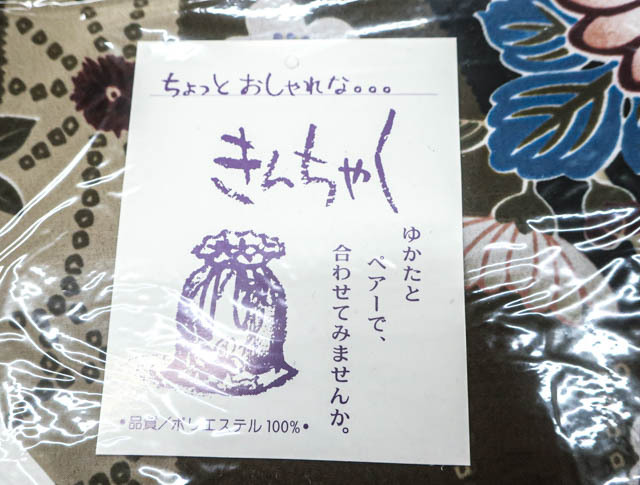 ちょっとおしゃれな。。。
きんちゃく
ゆかたと
ペアーで、
合わせてみませんか。
・品質/ポリエステル100%・